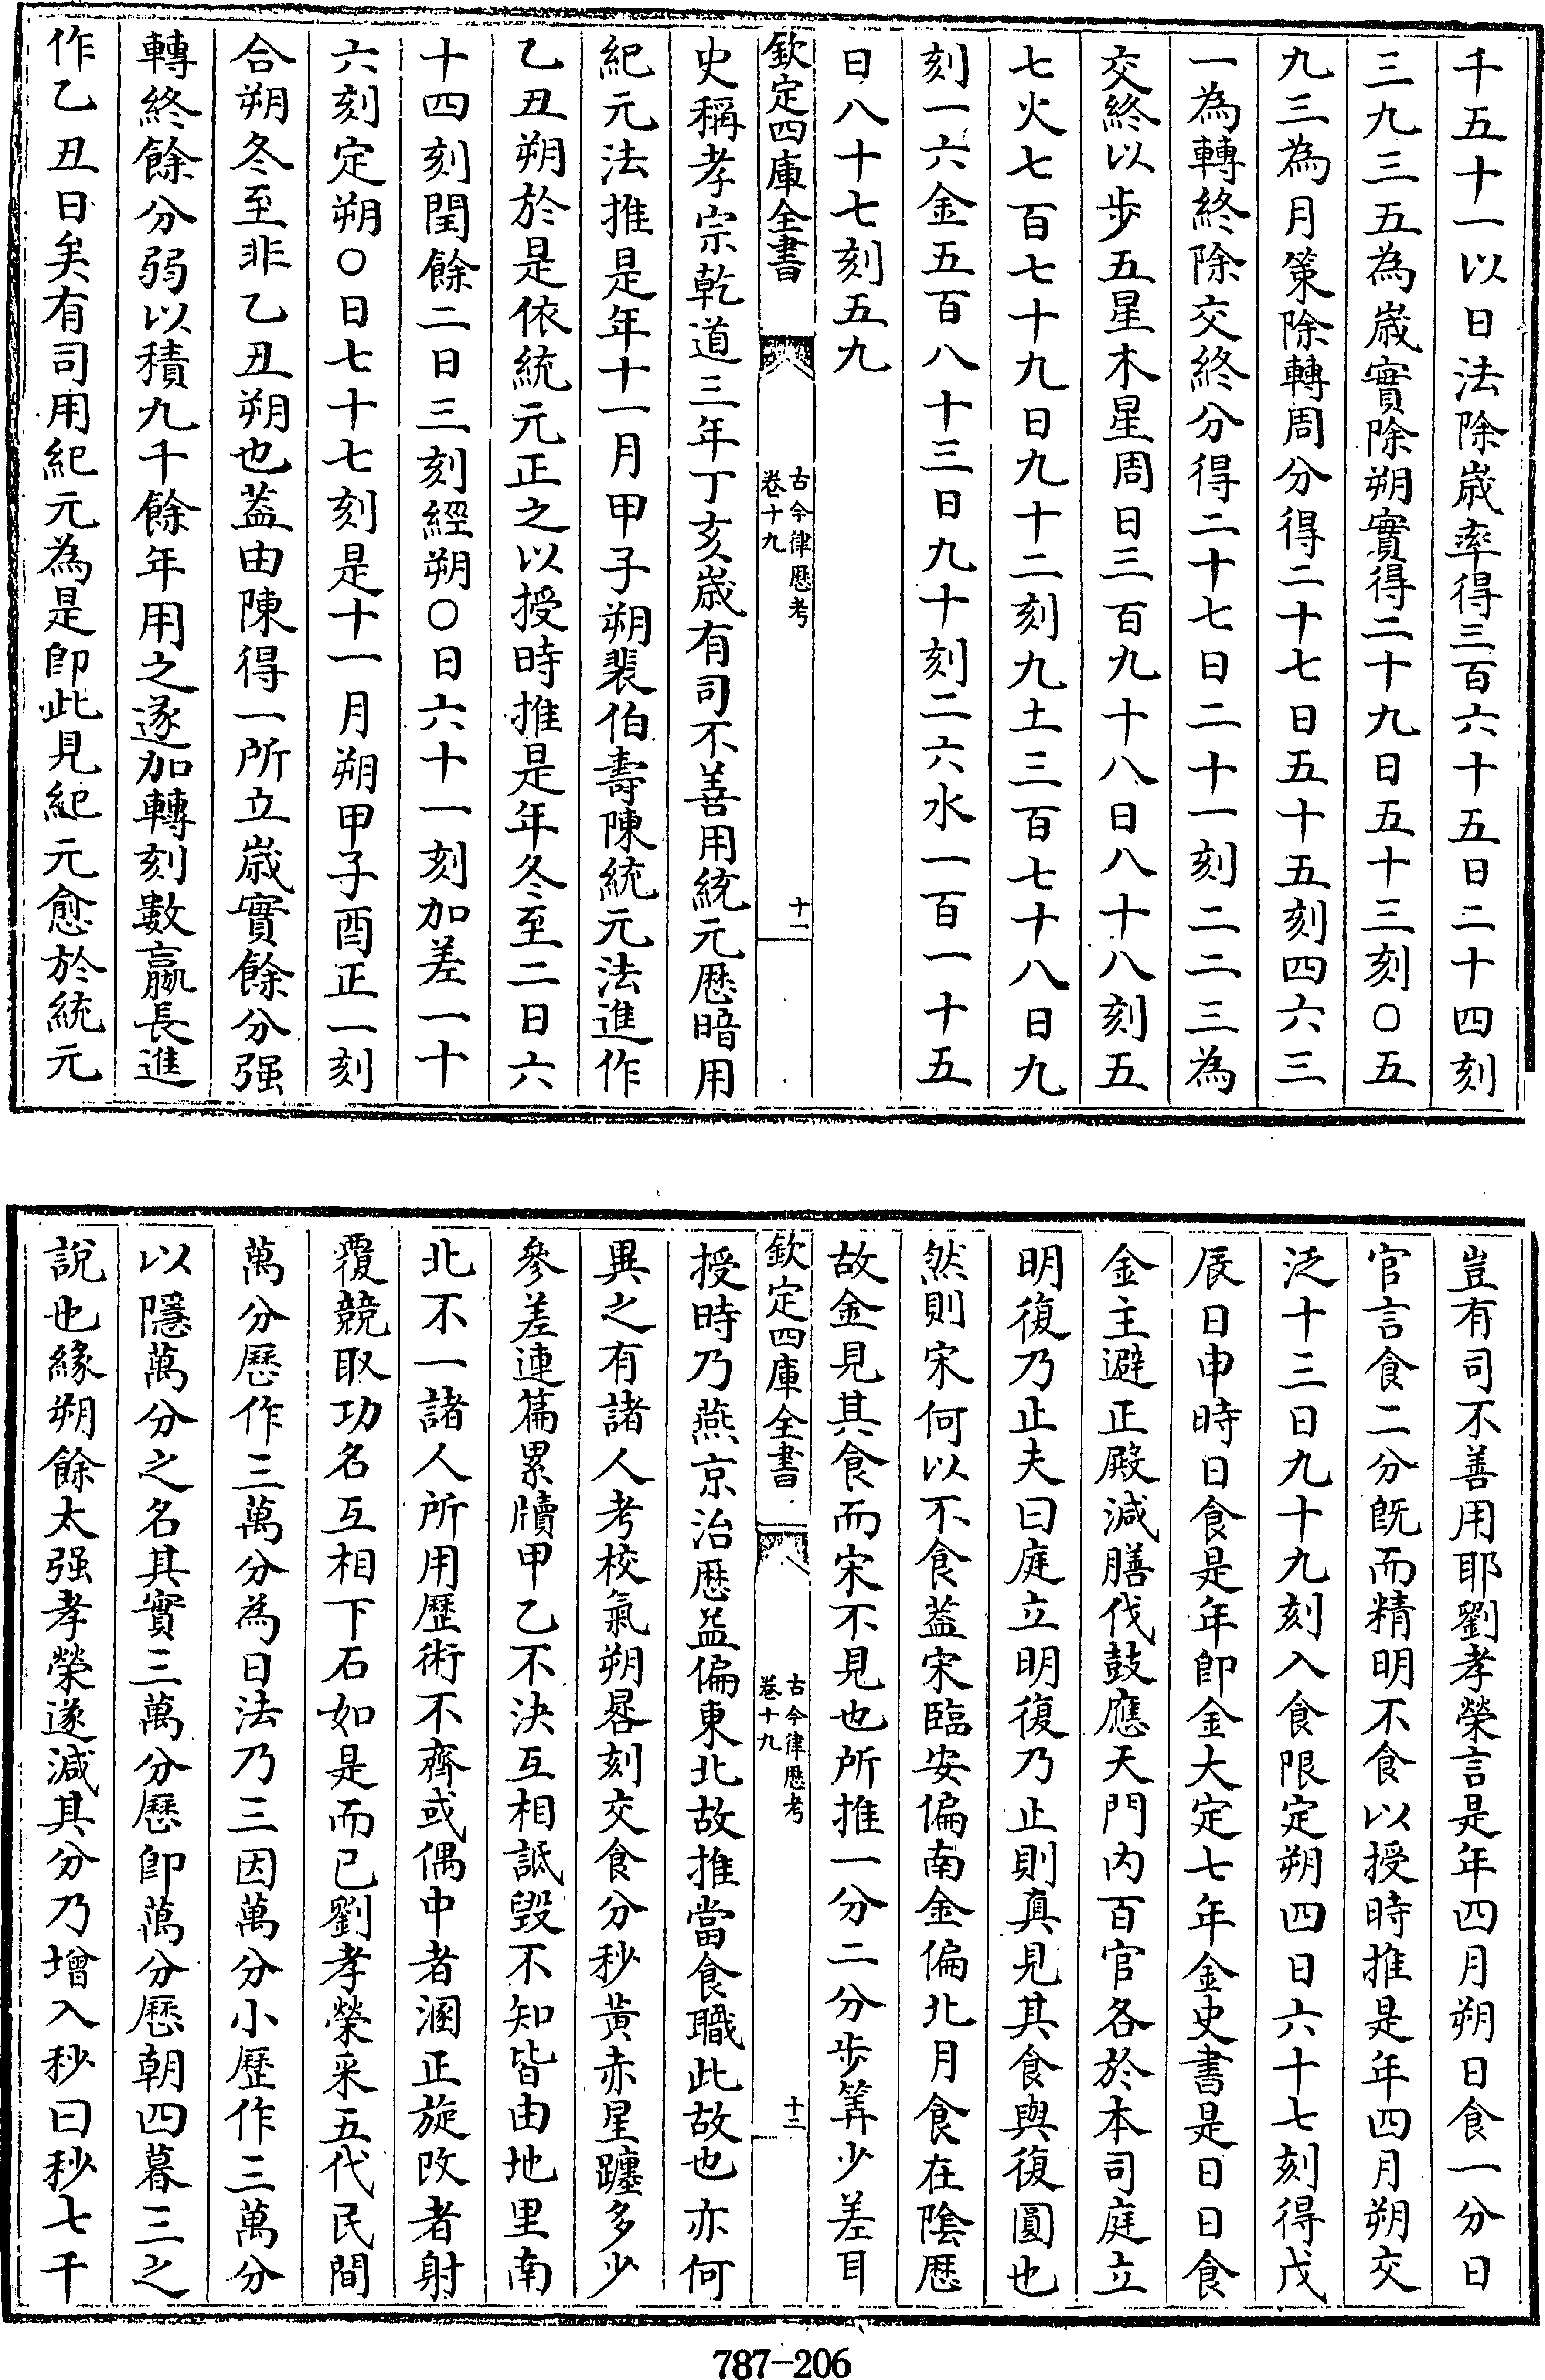 千五十一以日法除歳率得三百六十五日二十四刻
三九三五為歳實除朔實得二十九日五十三刻〇五
九三為月策除轉周分得二十七日五十五刻四六三
一為轉終除交終分得二十七日二十一刻二二三為
交終以步五星木星周日三百九十八日八十八刻五
七火七百七十九日九十二刻九土三百七十八日九
刻一六金五百八十三日九十刻二六水一百一十五
日八十七刻五九
欽定四庫全書
古今律歴考
卷十九
十二
史稱孝宗乾道三年丁亥歳有司不善用統元歴暗用
紀元法推是年十一月甲子朔裴伯壽陳統元法進作
乙丑朔於是依統元正之以授時推是年冬至二日六
十四刻閏餘二日三刻經朔〇日六十一刻加差一十
六刻定朔〇日七十七刻是十一月朔甲子酉正一刻
合朔冬至非乙丑朔也葢由陳得一所立歳實餘分强
轉終餘分弱以積九千餘年用之遂加轉刻數贏長進
作乙丑日矣有司用紀元為是即此見紀元愈於統元
豈有司不善用耶劉孝榮言是年四月朔日食一分日
官言食二分既而精明不食以授時推是年四月朔交
泛十三日九十九刻入食限定朔四日六十七刻得戊
辰日申時日食是年即金大定七年金史書是日日食
金主避正殿減膳伐鼓應天門内百官各於本司庭立
明復乃止夫曰庭立明復乃止則真見其食與復圓也
然則宋何以不食葢宋臨安偏南金偏北月食在陰歴
故金見其食而宋不見也所推一分二分步筭少差耳
欽定四庫全書
古今律歴考
卷十九
十二
授時乃燕京治歴益偏東北故推當食職此故也亦何
異之有諸人考校氣朔晷刻交食分秒黄赤星躔多少
參差連篇累牘甲乙不決互相詆毁不知皆由地里南
北不一諸人所用歴術不齊或偶中者溷正旋改者射
覆競取功名互相下石如是而已劉孝榮采五代民間
萬分歴作三萬分為日法乃三因萬分小歴作三萬分
以隱萬分之名其實三萬分歴即萬分歴朝四暮三之
說也緣朔餘太强孝榮遂減其分乃增入秒曰秒七千
787-206